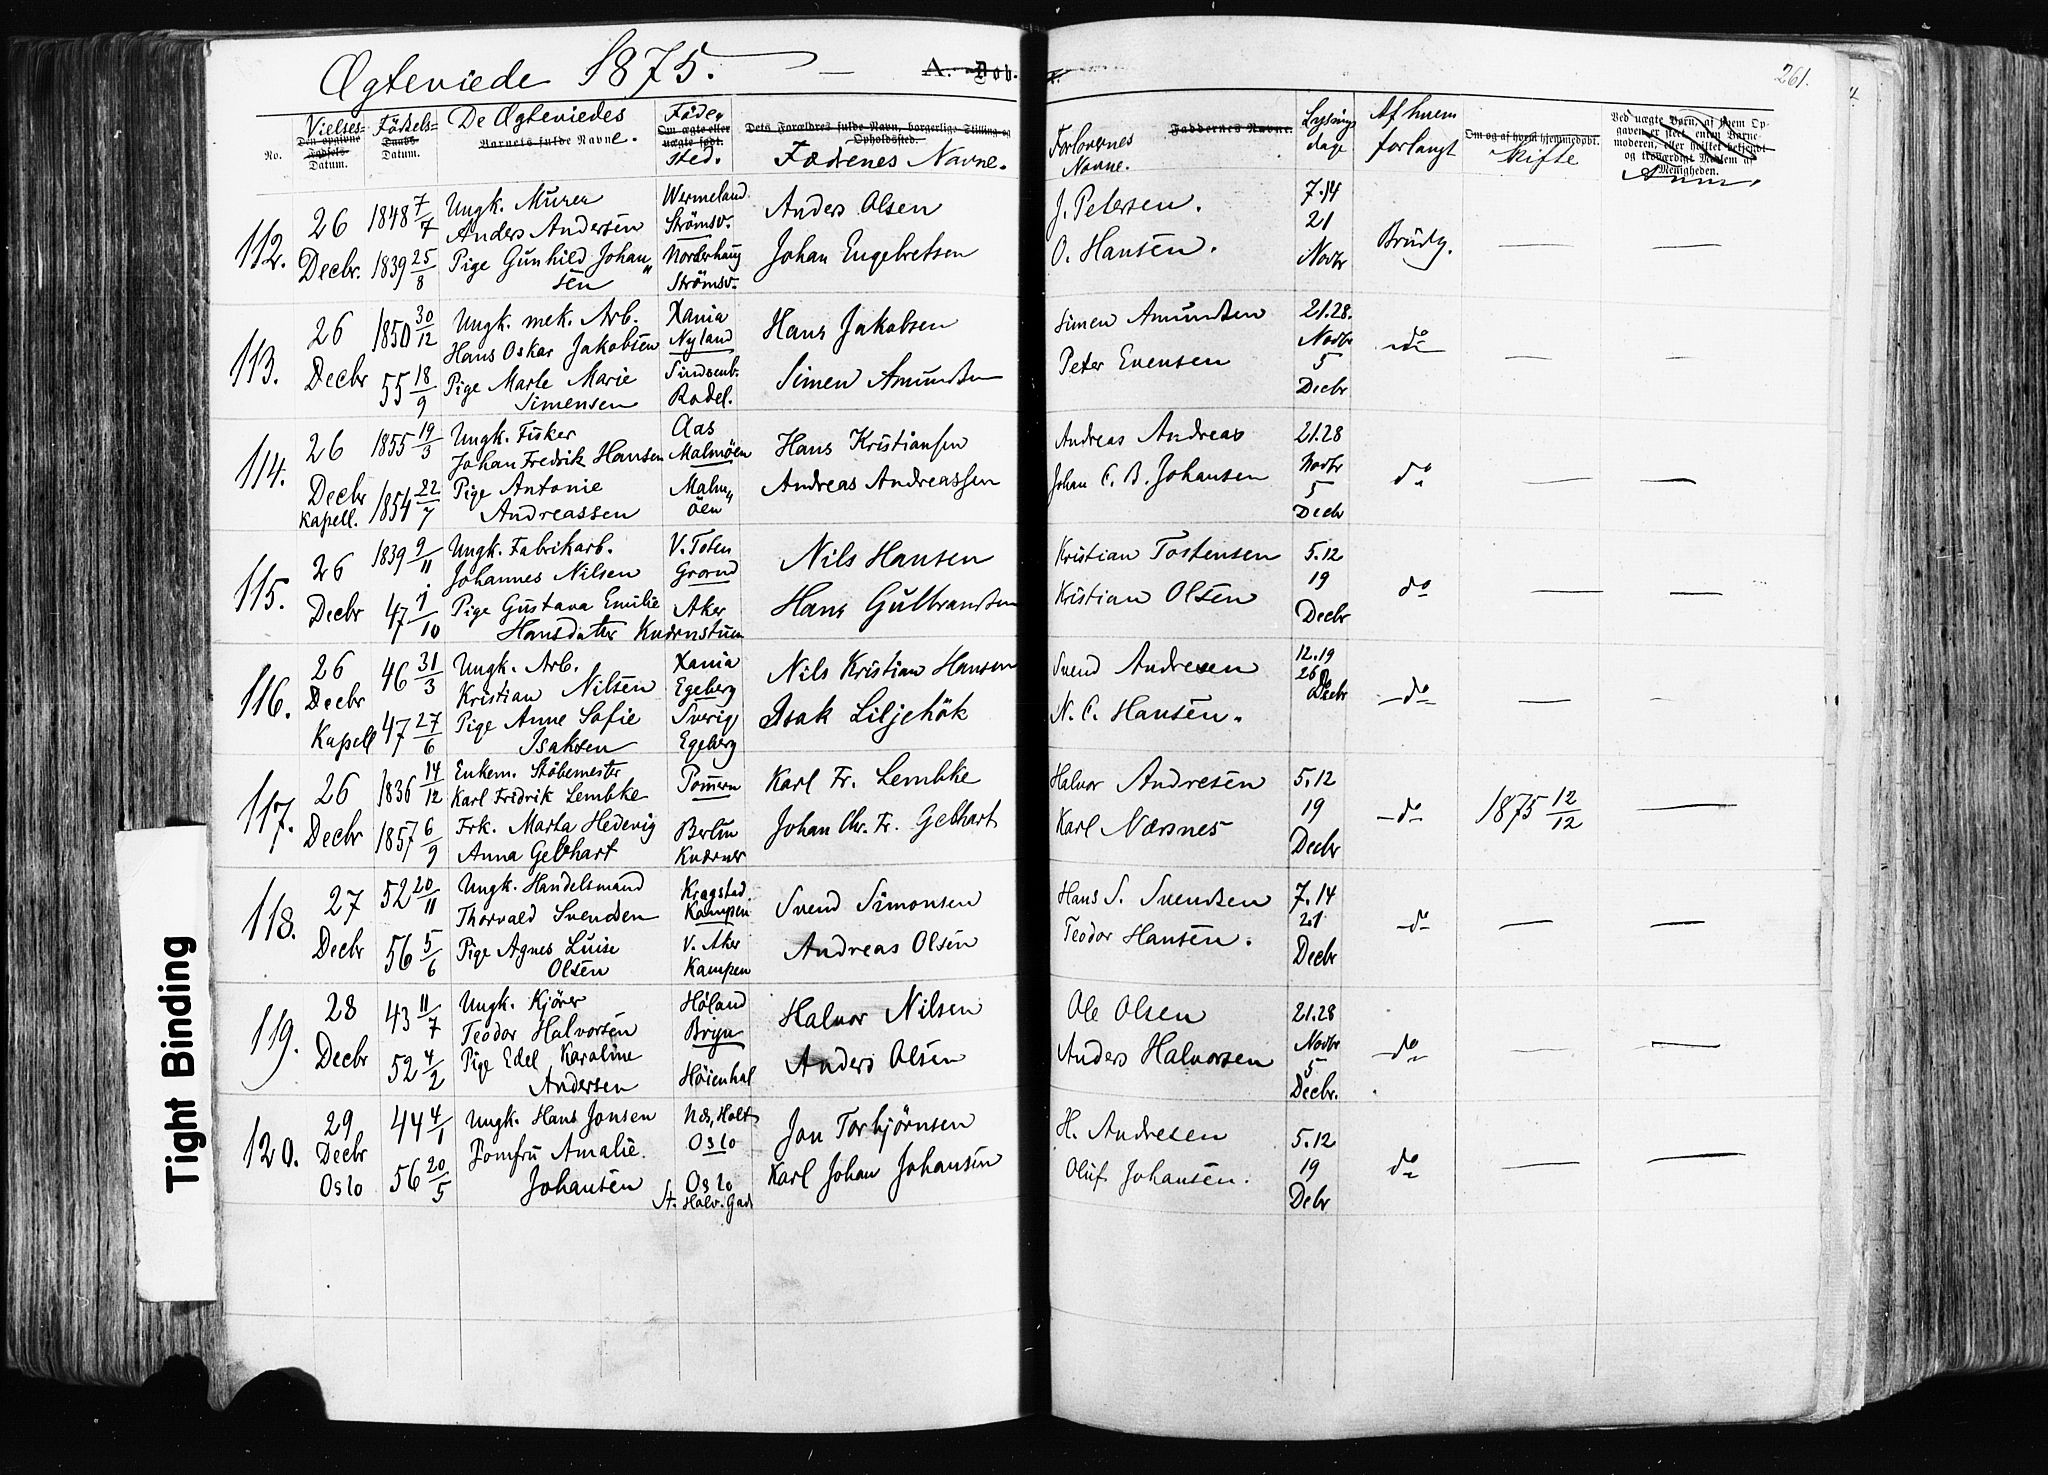 Ægteviede 1875. — A. Døb.
261.
No.
Vielses=
Den opgivne
Fødsels-
Datum.
Födsels=
Daabs-
Datum.
De Ægteviedes
Barnets fulde Navne.
Föde,
Om ægte eller
uægte født.
sted.
Dets Forældres fulde Navn, borgerlige Stilling og
Opholdssted.
Fædrenes Navne.
Faddernes Navne.
Forlovernes
Navne.
Lysnings
dage
Af hvem
forlangt
Om og af hvem hjemmedøbt.
Skifte
Ved uægte Børn, af hvem Op-
gaven er skeet, enten Barne-
moderen, eller hvilket bekjendt
og troværdigt Medlem af
Menigheden.
Anm.
112. 26 1848 7/7 Ungk. Murer Wermeland Anders Olsen J. Petersen. 7.14
Anders Andersen Strömsv. 21 Brudg. — —
Decbr. 1839 25/8 Pige Gunhild Johan„ Norderhaug Johan Engebretsen O. Hansen. Novbr
sen Strömsv.
113. 26 1850 30/12 Ungk. mek. Arb. Xania Hans Jakobsen Simen Amundsen 21.28.
Hans Oskar Jakobsen Nyland Novbr do — —
Decbr 55 18/9 Pige Marte Marie Simen Amundsen Peter Evensen 5
Simensen Rodel. Decbr
114. 26 1855 19/3 Ungk. Fisker Aas Hans Kristiansen Andreas Andreas 21.28
Johan Fredrik Hansen Malmöen Novbr do — —
Decbr 1854 22/7 Pige Antonie Malm„ Andreas Andreassen Johan C. B. Johansen 5
Kapell. Andreassen öen Decbr
115. 26 1839 9/11 Ungk. Fabrikarb. V. Toten Nils Hansen Kristian Tostensen 5.12
Johannes Nilsen Grorud 19 do — —
Decbr 47 1/10 Pige Gustava Emilie Aker Hans Gulbrandsen Kristian Olsen Decbr
Hansdatter Kværnstuen
116. 26 46 31/3 Ungk. Arb. Xania Nils Kristian Hansen Svend Andresen 12.19
Decbr Kristian Nilsen Egeberg 26 Decbr — do — — —
Kapell 47 27/6 Pige Anne Sofie Sverig Isak Liljehök N. C. Hansen.
Isaksen Egeberg
117. 26 1836 14/12 Enkem. Støbemester Pommern Karl Fr. Lembke Halvor Andresen 5.12
Karl Fridrik Lembke 19 — do — 1875 12/12 —
Decbr 1857 6/9 Frk. Marta Hedevig Berlin Johan Chr. Fr. Gebhart Karl Næsnes Decbr
Anna Gebhart Kværner
118. 27 52 20/11 Ungk. Handelsmand Kragstad Svend Simonsen Hans S. Svendsen 7.14
Thorvald Svendsen Kampen 21 — do — — —
Decbr 56 5/6 Pige Agnes Luise V. Aker Andreas Olsen Teodor Hansen. Decbr
Olsen Kampen
119. 28 43 11/7 Ungk. Kjörer Höland Halvor Nilsen Ole Olsen 21.28
Teodor Halvorsen Bryn Novbr — do — — —
Decbr 52 4/2 Pige Edel Karoline Höienhal Anders Olsen Anders Halvorsen 5
Andersen Decbr.
120. 29 44 4/1 Ungk. Hans Jonsen Næs, Holt Jon Torbjörnsen H. Andresen 5.12
Decbr Jomfru Amalie Oslo 19 do — —
Oslo 56 20/5 Johansen Oslo Karl Johan Johansen Oluf Johansen. Debr
St. Halv. Gad
Tight Binding